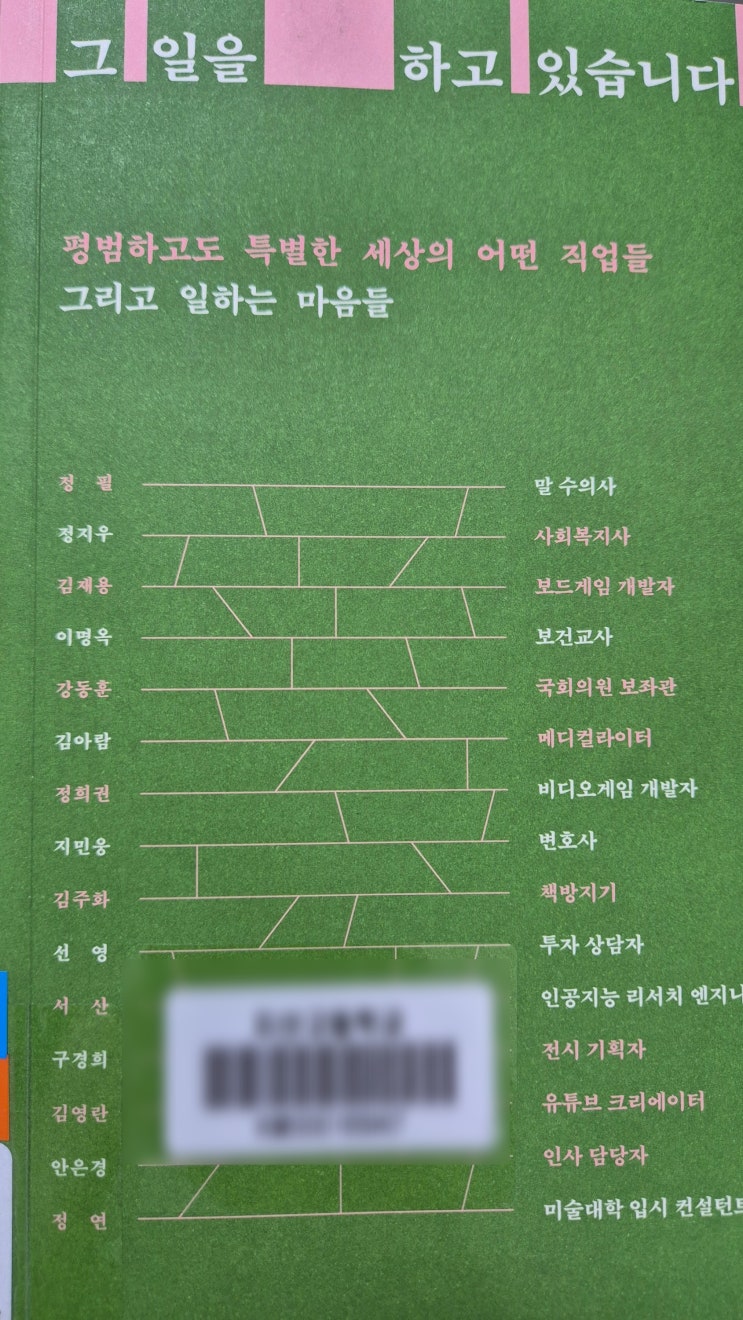 그 일을 하고 있습니다
평범하고도 특별한 세상의 어떤 직업들
그리고 일하는 마음들
정 필 말 수의사
정지우 사회복지사
김재용 보드게임 개발자
이명옥 보건교사
강동훈 국회의원 보좌관
김아람 메디컬라이터
정희권 비디오게임 개발자
지민웅 변호사
김주화 책방지기
선 영 투자 상담자
서 산 인공지능 리서치
구경희 전시 기획자
김영란 유튜브 크리에이터
안은경 인사 담당자
정 연 미술대학 입시